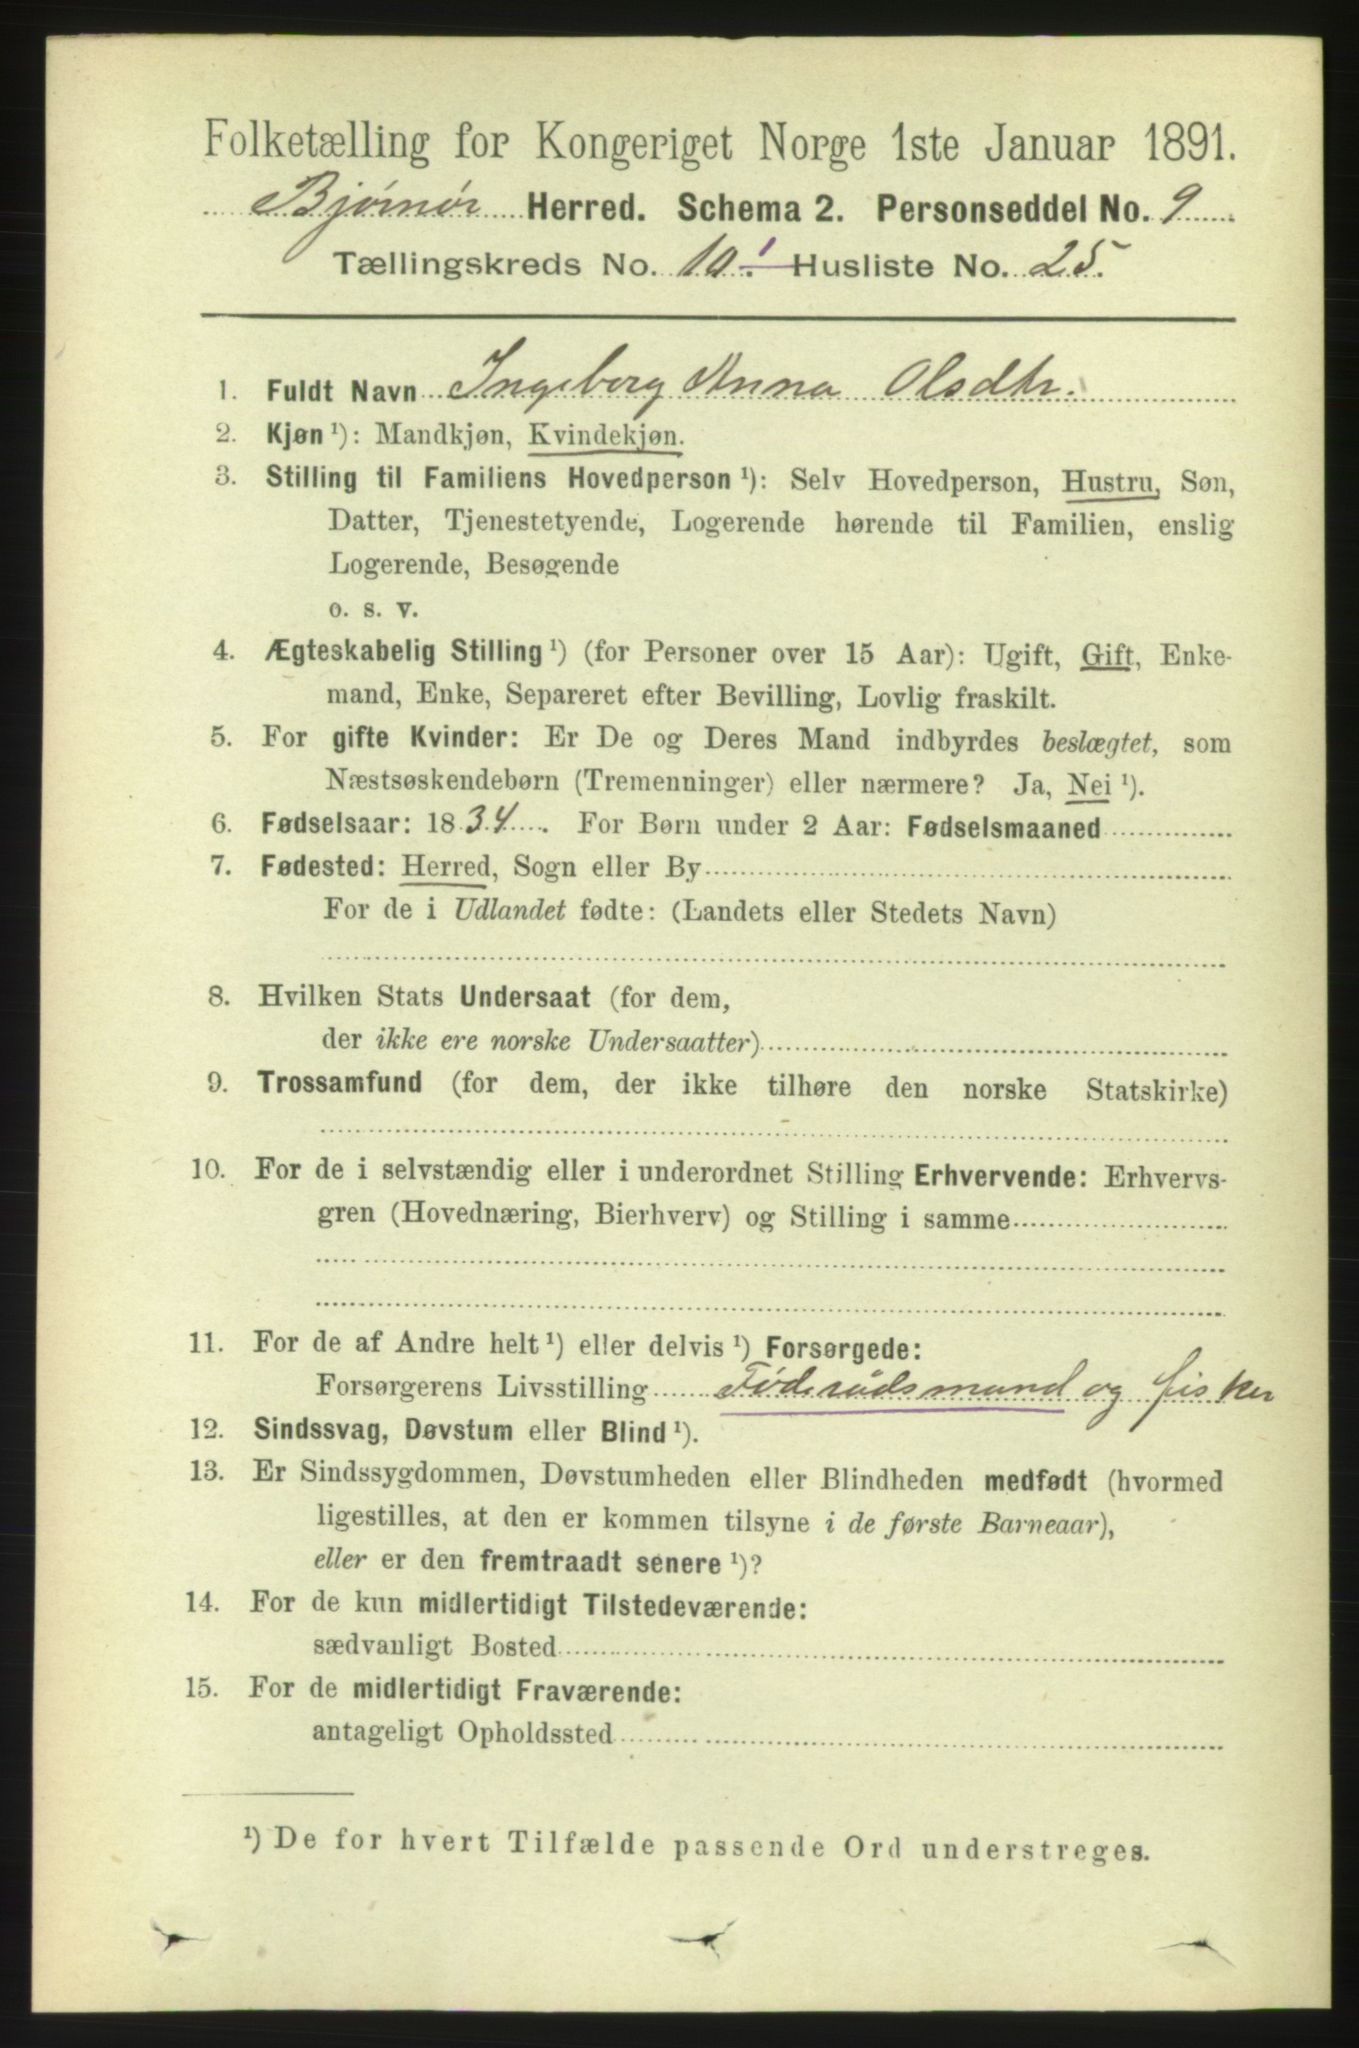 Folketælling for Kongeriget Norge 1ste Januar 1891.
Bjørnør Herred. Schema 2. Personseddel No. 9
Tællingskreds No. 10. Husliste No. 25.
1. Fuldt Navn Ingeborg Anna Olsdtr.
2. Kjøn ¹): Mandkjøn, Kvindekjøn.
3. Stilling til Familiens Hovedperson ¹): Selv Hovedperson, Hustru, Søn,
Datter, Tjenestetyende, Logerende hørende til Familien, enslig
Logerende, Besøgende
o. s. v.
4. Ægteskabelig Stilling ¹) (for Personer over 15 Aar): Ugift, Gift, Enke-
mand, Enke, Separeret efter Bevilling, Lovlig fraskilt.
5. For gifte Kvinder: Er De og Deres Mand indbyrdes beslægtet, som
Næstsøskendebørn (Tremenninger) eller nærmere? Ja, Nei ¹).
6. Fødselsaar: 1834. For Børn under 2 Aar: Fødselsmaaned
7. Fødested: Herred, Sogn eller By
For de i Udlandet fødte: (Landets eller Stedets Navn)
8. Hvilken Stats Undersaat (for dem,
der ikke ere norske Undersaatter)
9. Trossamfund (for dem, der ikke tilhøre den norske Statskirke)
10. For de i selvstændig eller i underordnet Stilling Erhvervende: Erhvervs-
gren (Hovednæring, Bierhverv) og Stilling i samme
11. For de af Andre helt ¹) eller delvis ¹) Forsørgede:
Forsørgerens Livsstilling Føderådsmand og fisker
12. Sindssvag, Døvstum eller Blind ¹).
13. Er Sindssygdommen, Døvstumheden eller Blindheden medfødt (hvormed
ligestilles, at den er kommen tilsyne i de første Barneaar),
eller er den fremtraadt senere ¹)?
14. For de kun midlertidigt Tilstedeværende:
sædvanligt Bosted
15. For de midlertidigt Fraværende:
antageligt Opholdssted
¹) De for hvert Tilfælde passende Ord understreges.